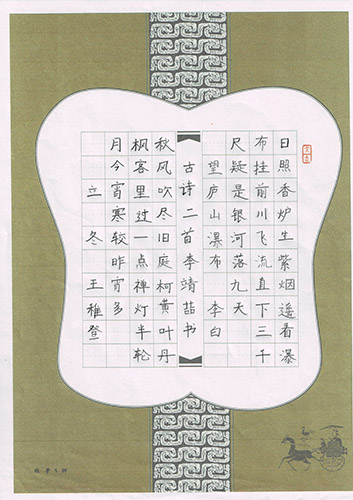 日照香炉生紫烟遥看瀑
布挂前川飞流直下三千
尺疑是银河落九天
望庐山瀑布 李白
古诗二首李靖喆书
秋风吹尽旧庭柯黄叶丹
枫客里过一点禅灯半轮
月今宵寒较昨宵多
立冬 王稚登